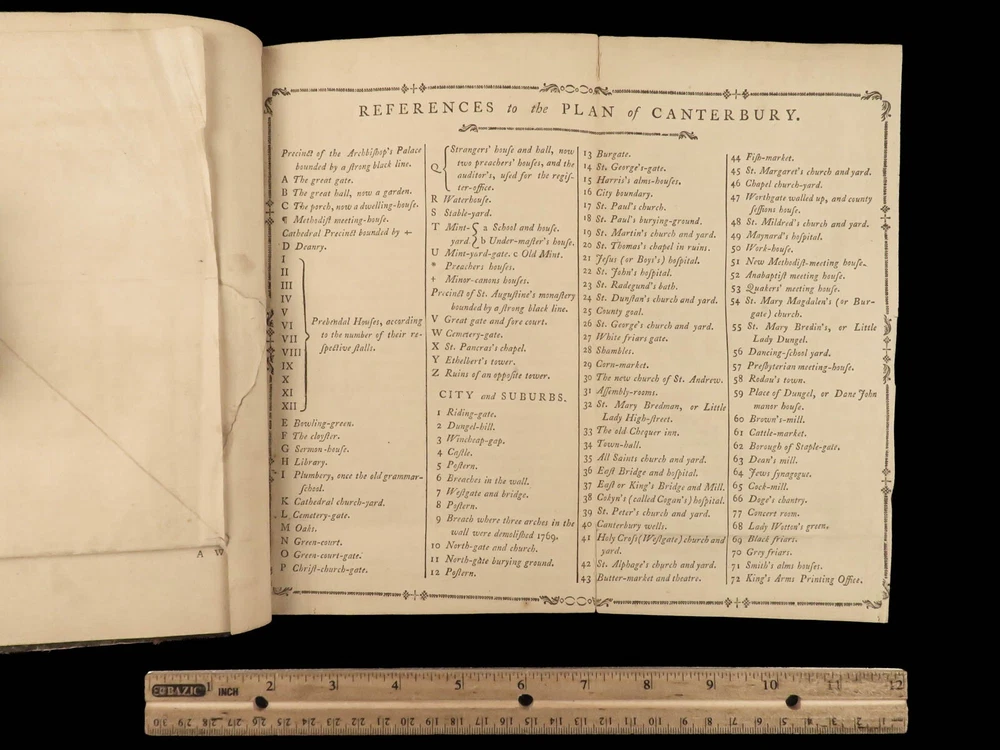 REFERENCES to the PLAN of CANTERBURY.
Precinct of the Archbiſhop's Palace
bounded by a ſtrong black line.
A The great gate.
B The great hall, now a garden.
C The porch, now a dwelling-houſe.
¶ Methodiſt meeting-houſe.
Cathedral Precinct bounded by +-
D Deanry.
I
II
III
IV
V
VI
VII
VIII
IX
X
XI
XII
Prebendal Houſes, according
to the number of their re-
ſpective ſtalls.
E Bowling-green.
F The cloyſter.
G Sermon-houſe.
H Library.
I Plumbery, once the old grammar-
ſchool.
K Cathedral church-yard.
L Cemetery-gate.
M Oaks.
N Green-court.
O Green-court-gate.
P Chriſt-church-gate.
Q Strangers' houſe and hall, now
two preachers' houſes, and the
auditor's, uſed for the regiſ-
ter-office.
R Waterhouſe.
S Stable-yard.
T Mint-yard. a School and houſe.
b Under-maſter's houſe.
U Mint-yard-gate. c Old Mint.
* Preachers houſes.
+ Minor-canons houſes.
Precinct of St. Auguſtine's monaſtery
bounded by a ſtrong black line.
V Great gate and fore court.
W Cemetery-gate.
X St. Pancras's chapel.
Y Ethelbert's tower.
Z Ruins of an oppoſite tower.
CITY and SUBURBS.
1 Riding-gate.
2 Dungel-hill.
3 Wincheap-gap.
4 Caſtle.
5 Poſtern.
6 Breaches in the wall.
7 Weſtgate and bridge.
8 Poſtern.
9 Breach where three arches in the
wall were demoliſhed 1769.
10 North-gate and church.
11 North-gate burying ground.
12 Poſtern.
13 Burgate.
14 St. George's-gate.
15 Harris's alms-houſes.
16 City boundary.
17 St. Paul's church.
18 St. Paul's burying-ground.
19 St. Martin's church and yard.
20 St. Thomas's chapel in ruins.
21 Jeſus (or Boys's) hoſpital.
22 St. John's hoſpital.
23 St. Radegund's bath.
24 St. Dunſtan's church and yard.
25 County goal.
26 St. George's church and yard.
27 White friars gate.
28 Shambles.
29 Corn-market.
30 The new church of St. Andrew.
31 Aſſembly-rooms.
32 St. Mary Bredman, or Little
Lady High-ſtreet.
33 The old Chequer inn.
34 Town-hall.
35 All Saints church and yard.
36 Eaſt Bridge and hoſpital.
37 Eaſt or King's Bridge and Mill.
38 Cokyn's (called Cogan's) hoſpital.
39 St. Peter's church and yard.
40 Canterbury wells.
41 Holy Croſs (Weſtgate) church and
yard.
42 St. Alphage's church and yard.
43 Butter-market and theatre.
44 Fiſh-market.
45 St. Margaret's church and yard.
46 Chapel church-yard.
47 Worthgate walled up, and county
ſeſſions houſe.
48 St. Mildred's church and yard.
49 Maynard's hoſpital.
50 Work-houſe.
51 New Methodiſt-meeting houſe.
52 Anabaptiſt meeting houſe.
53 Quakers' meeting houſe.
54 St. Mary Magdalen's (or Bur-
gate) church.
55 St. Mary Bredin's, or Little
Lady Dungel.
56 Dancing-ſchool yard.
57 Preſbyterian meeting-houſe.
58 Rodau's town.
59 Place of Dungel, or Dane John
manor houſe.
60 Brown's-mill.
61 Cattle-market.
62 Borough of Staple-gate.
63 Dean's mill.
64 Jews ſynagogue.
65 Cock-mill.
66 Doge's chantry.
77 Concert room.
68 Lady Wotton's green.
69 Black friars.
70 Grey friars.
71 Smith's alms houſes.
72 King's Arms Printing Office.
A W
BAZIC 1 INCH 2 3 4 5 6 7 8 9 10 11 12
30 29 28 27 26 25 24 23 22 21 20 19 18 17 16 15 14 13 12 11 10 9 8 7 6 5 4 3 2 1